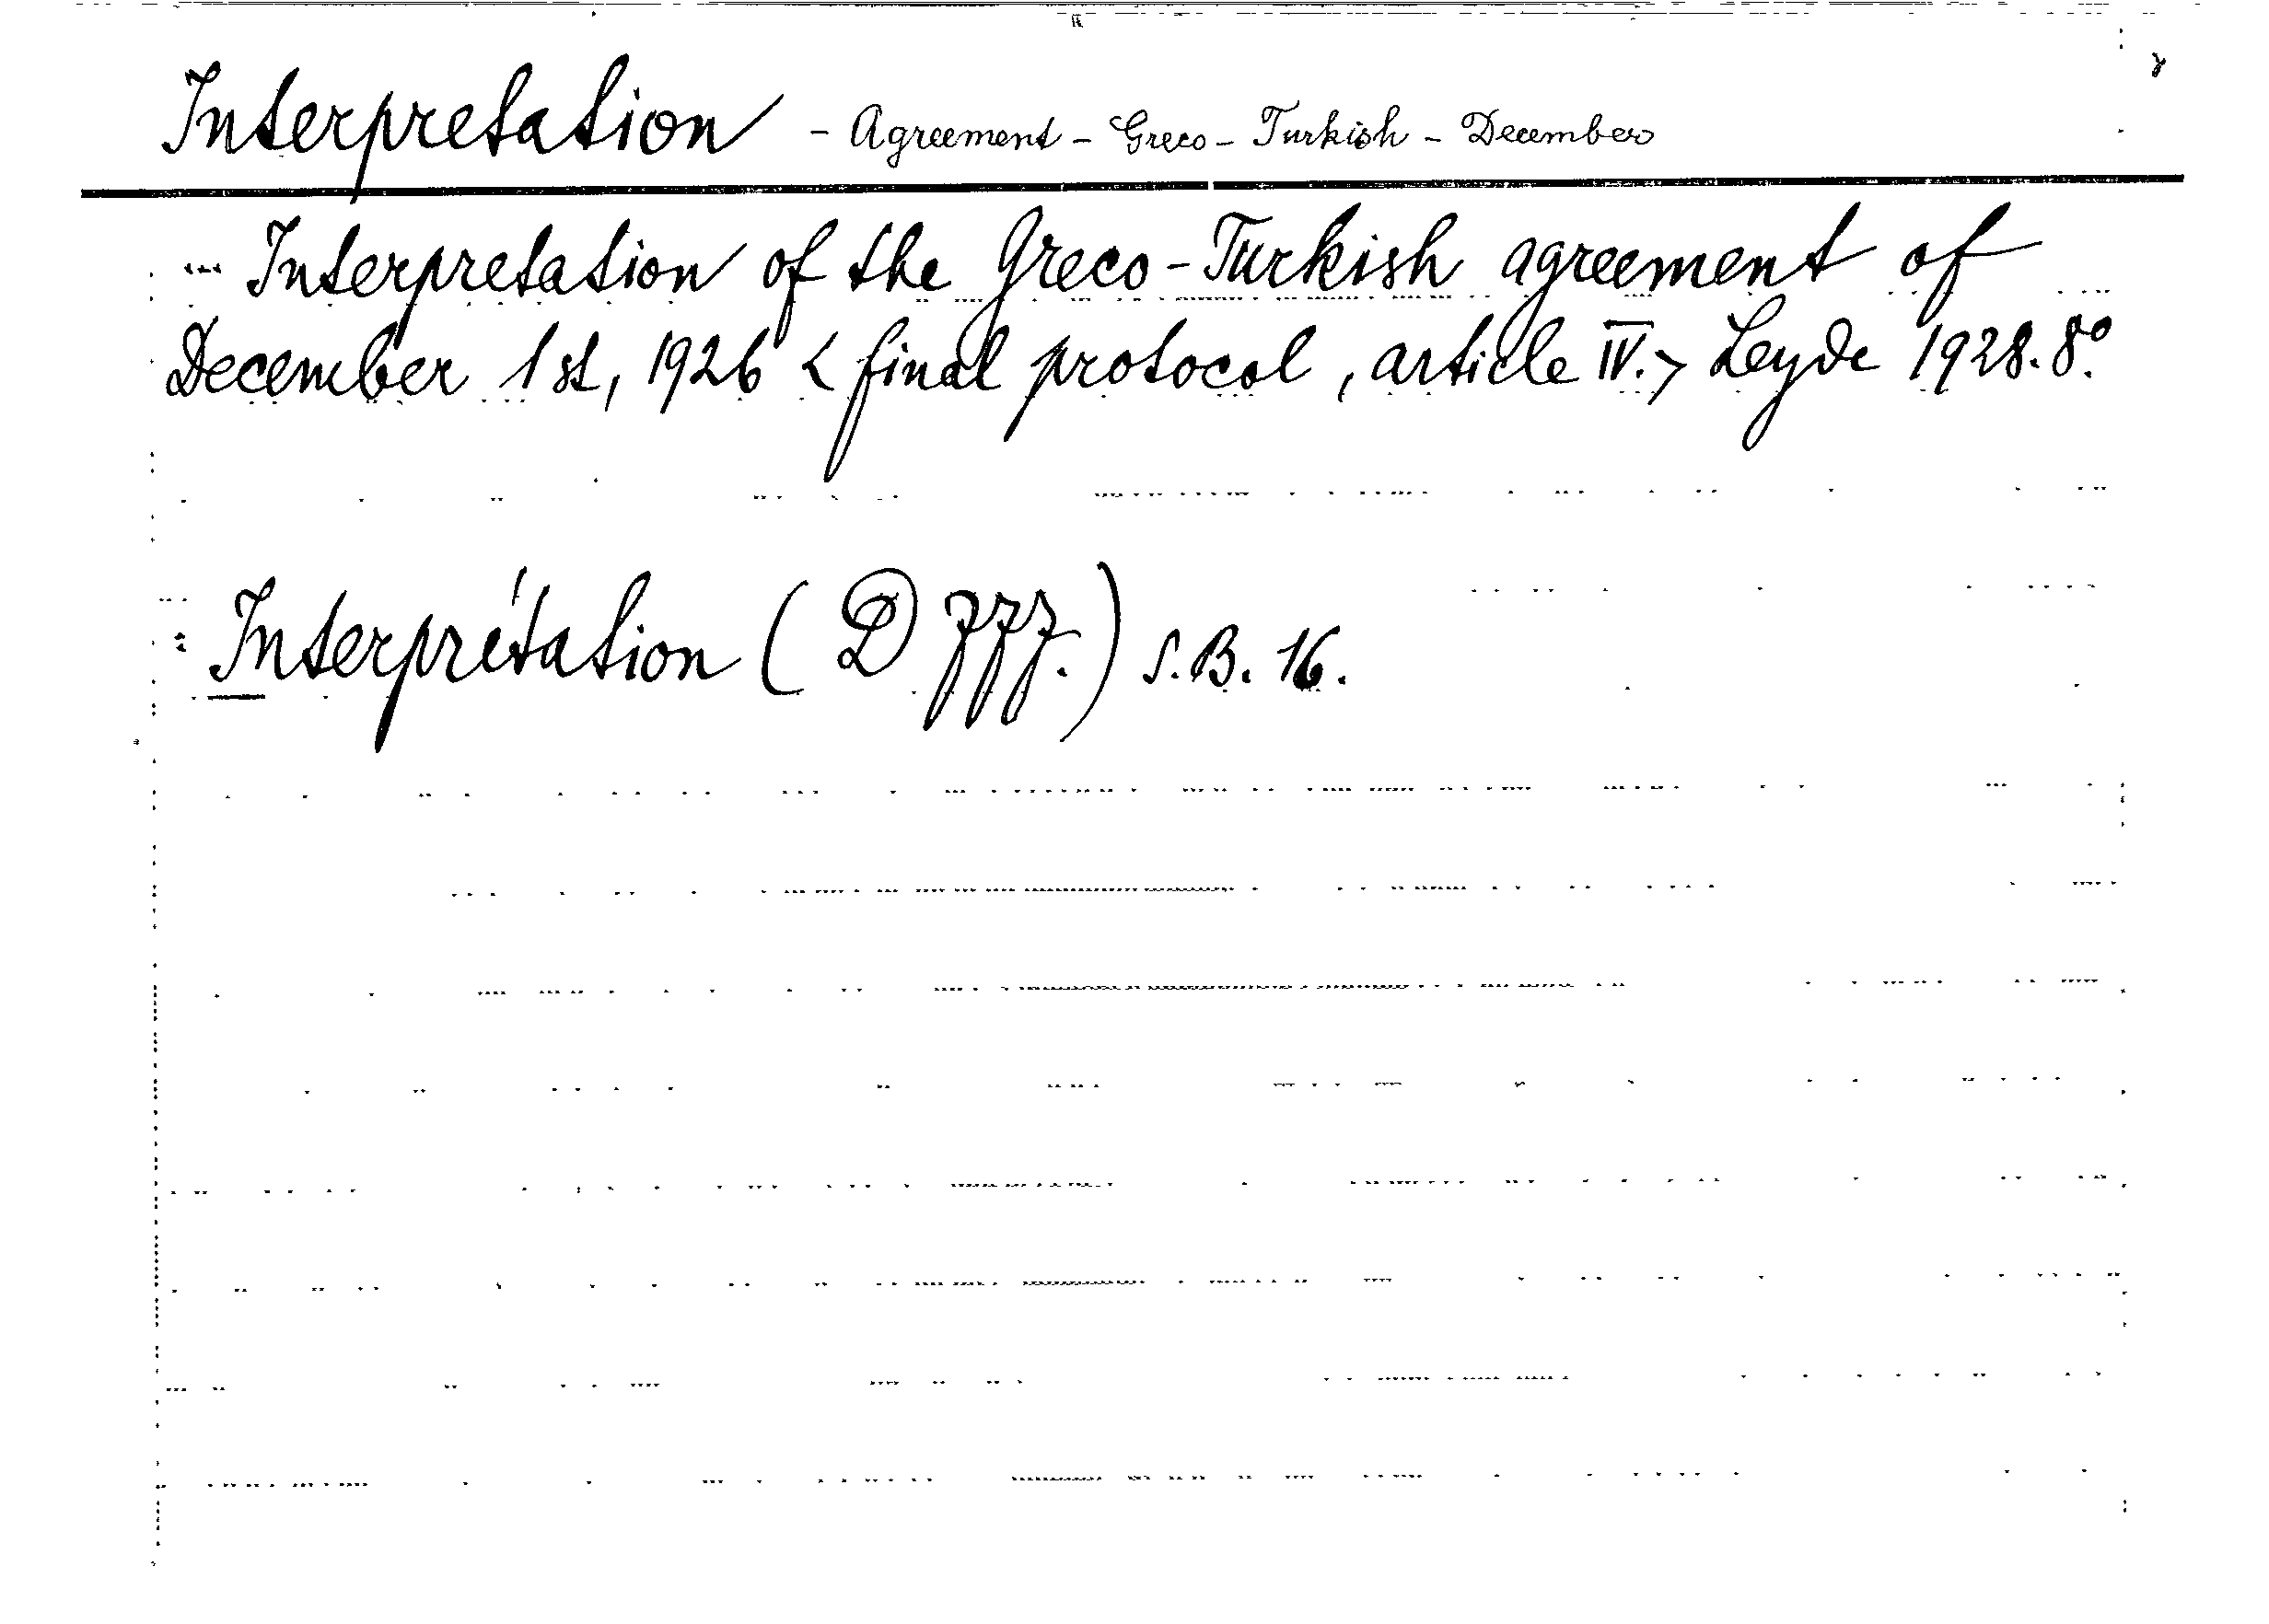 Interpretation - Agreement - Greco - Turkish - December
Interpretation of the Greco-Turkish agreement of
December 1st, 1926 < final protocol, article IV. > Leyde 1928. 8°.
= Interprétation (D) S.B. 16.